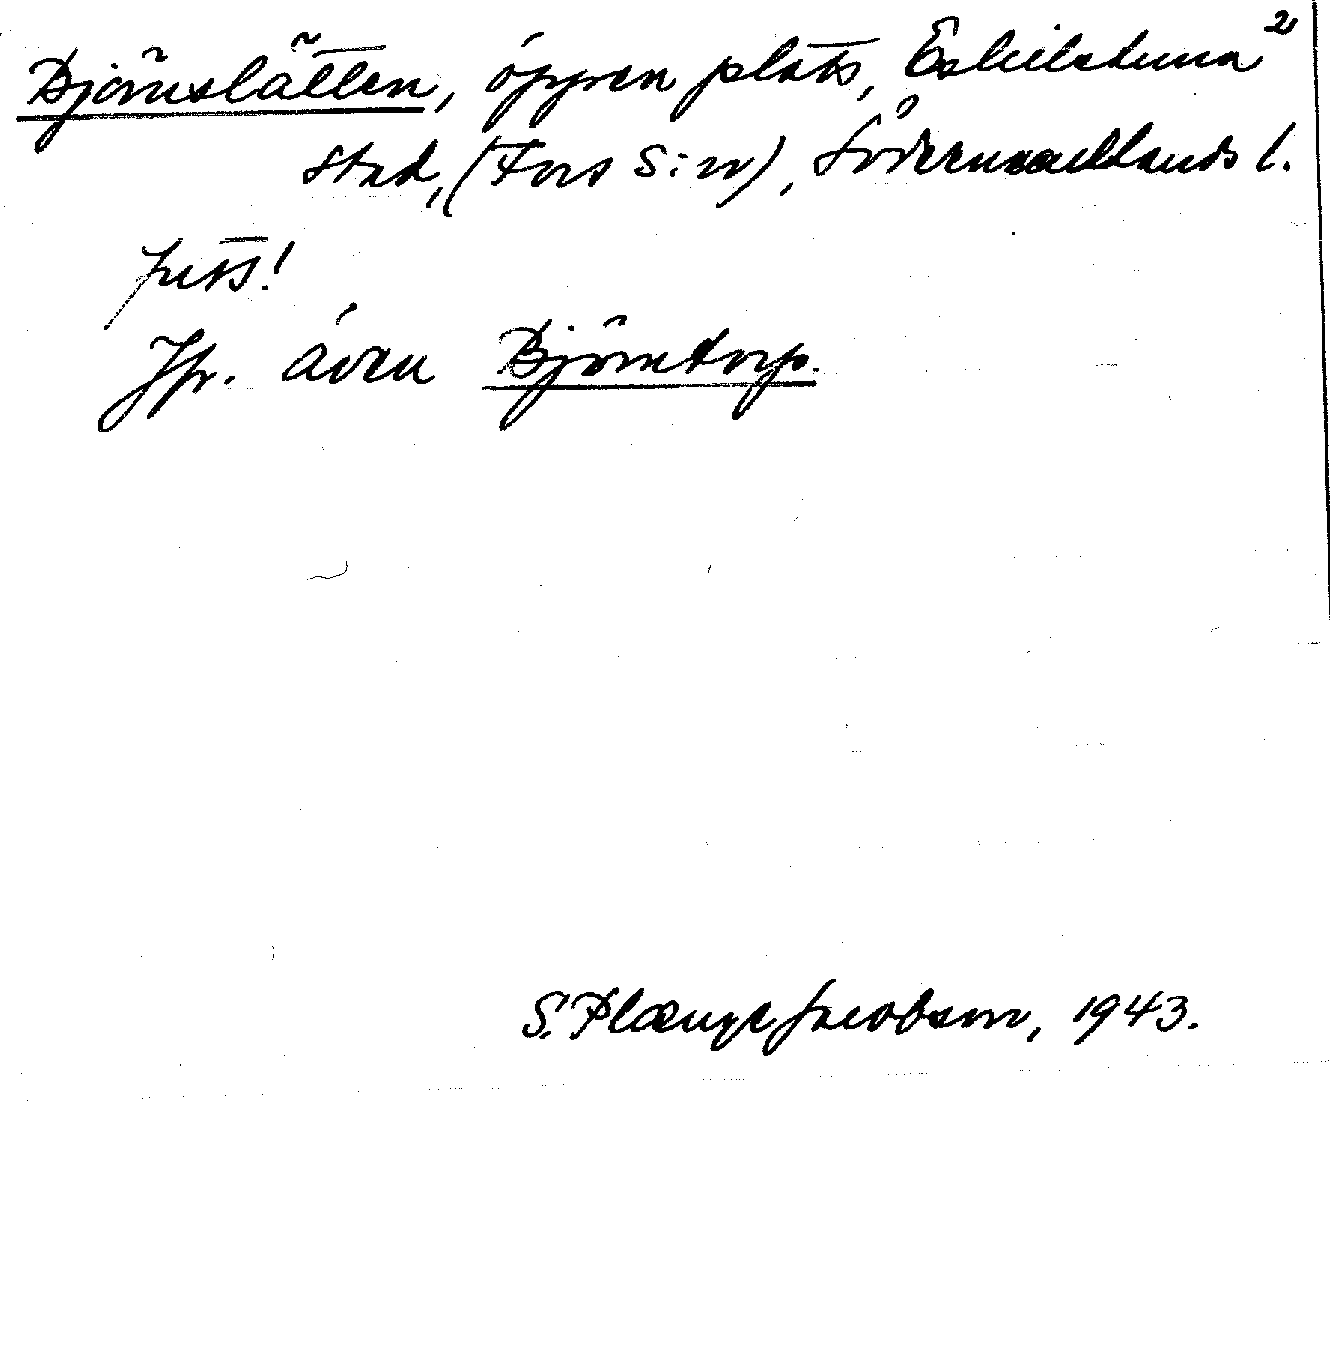 Björnslätten, öppen plats, Eskilstuna 2
stad, (Fors S:n), Södermanlands l.
Jfr. även Björntorp.
S. Plænge Jacobson, 1943.